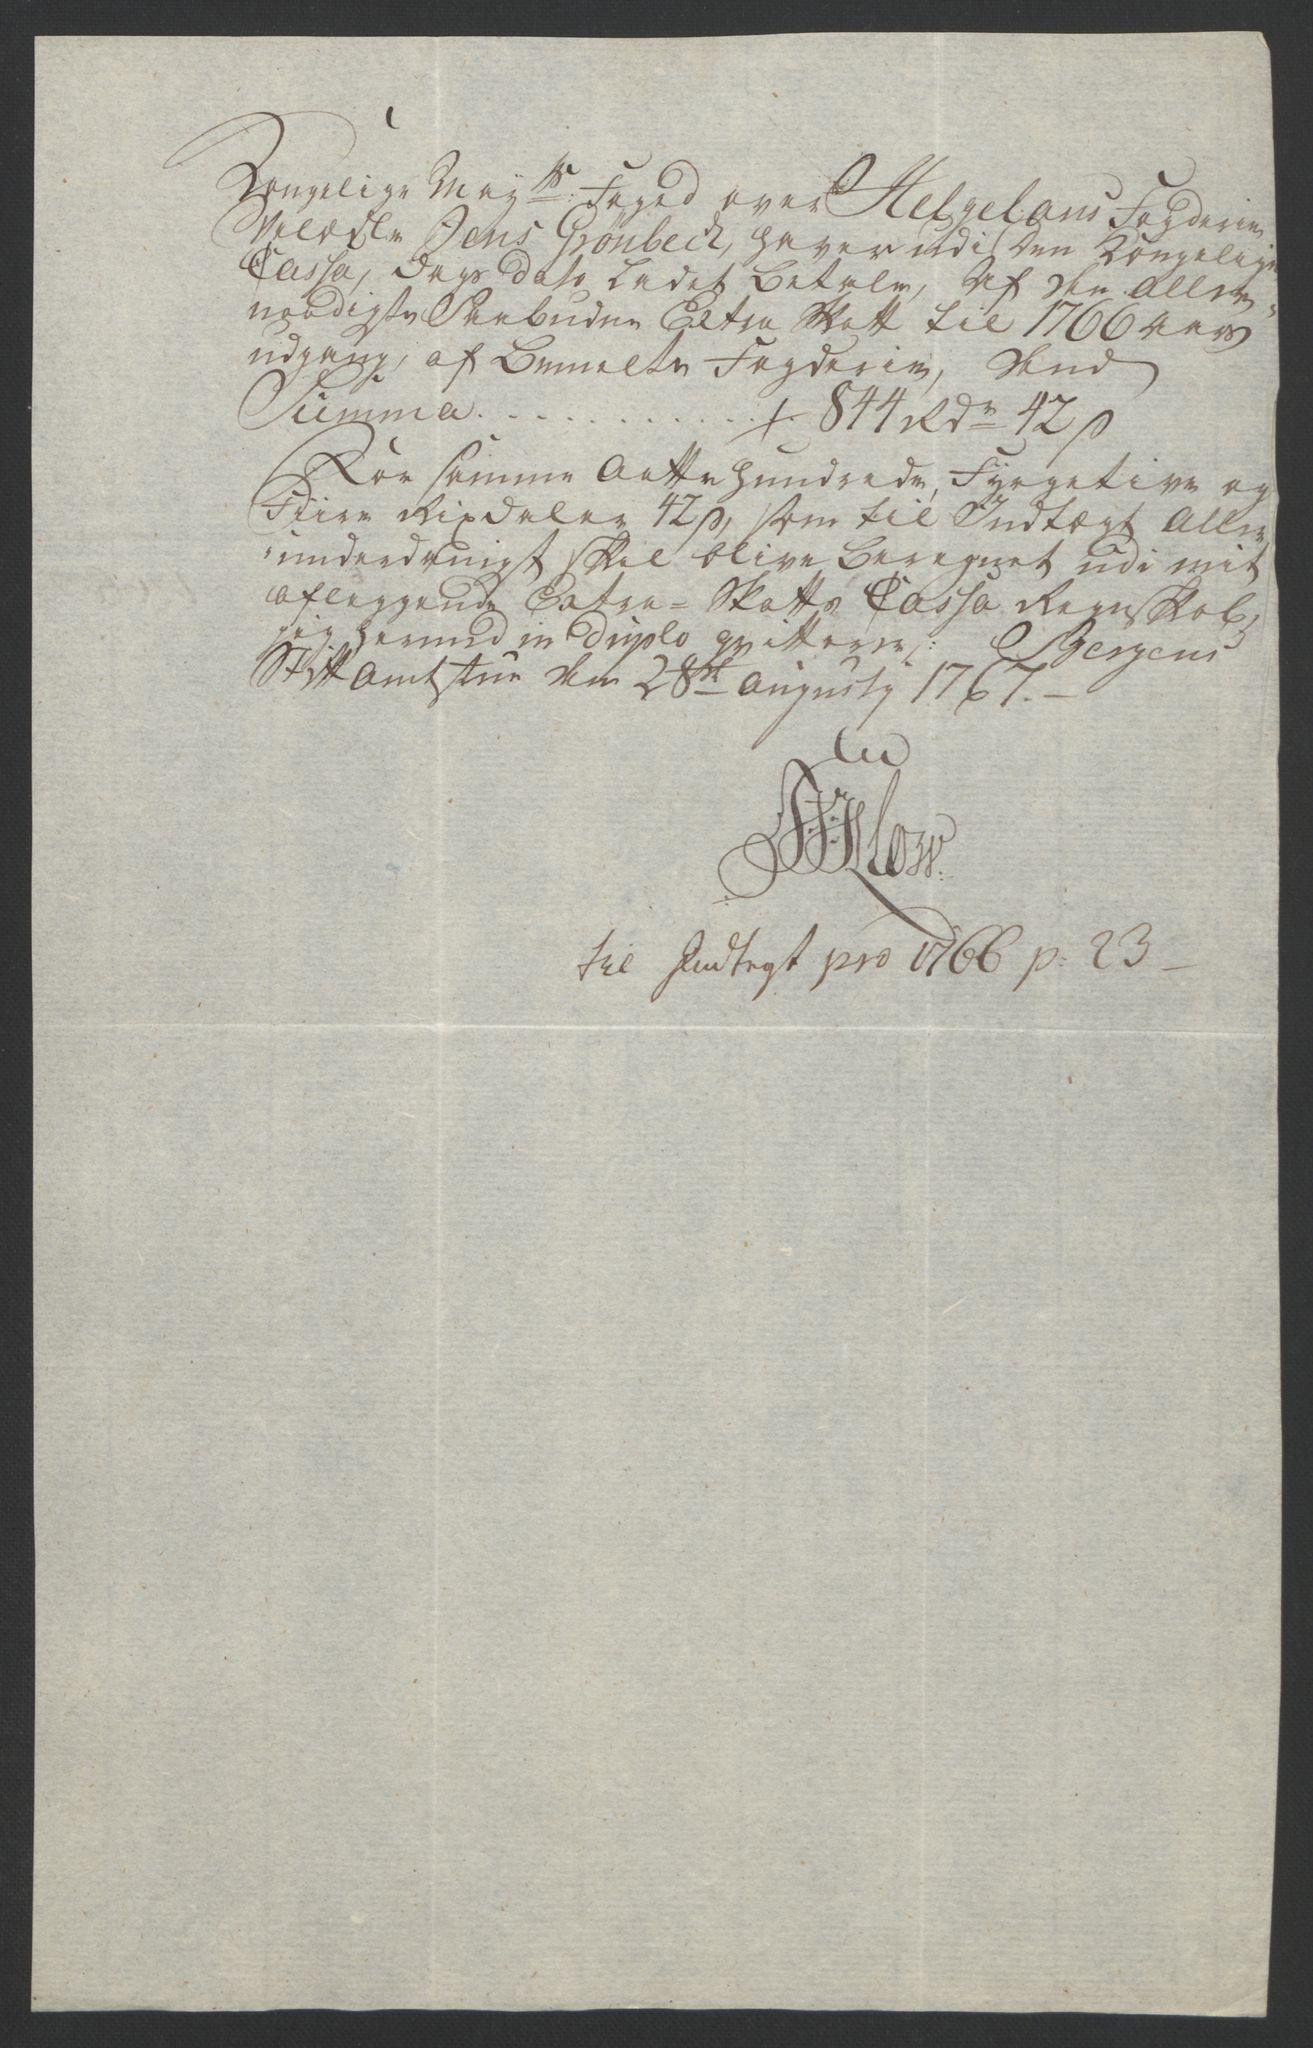 Kongelige May.ts Foged over Helgelans Fogderie,
Velædle Jens Grønbech, haver udi den Kongelige
Cassa, Dags Dato Ladet Betale, Af den Aller-
naadigste Paabudne Extra Skatt til 1766 Aars
udgang, af Bemelte Fogderie, dend
Summa . . . . . . . . . . . . 844 Rdr 42 s
For samme Aatte hundrede, Fyrgetive og
Fiire Rixdaler 42 s, som til Indtægt Aller-
underdanigst skal blive Beregnet udi mit
aflæggende Extra-Skatts Cassa Regnskab,
jeg herved in Duplo qvitterer. Bergens
Stift Amtstue den 28de Augusty 1767.
til Indtegt pro 1766 p: 23